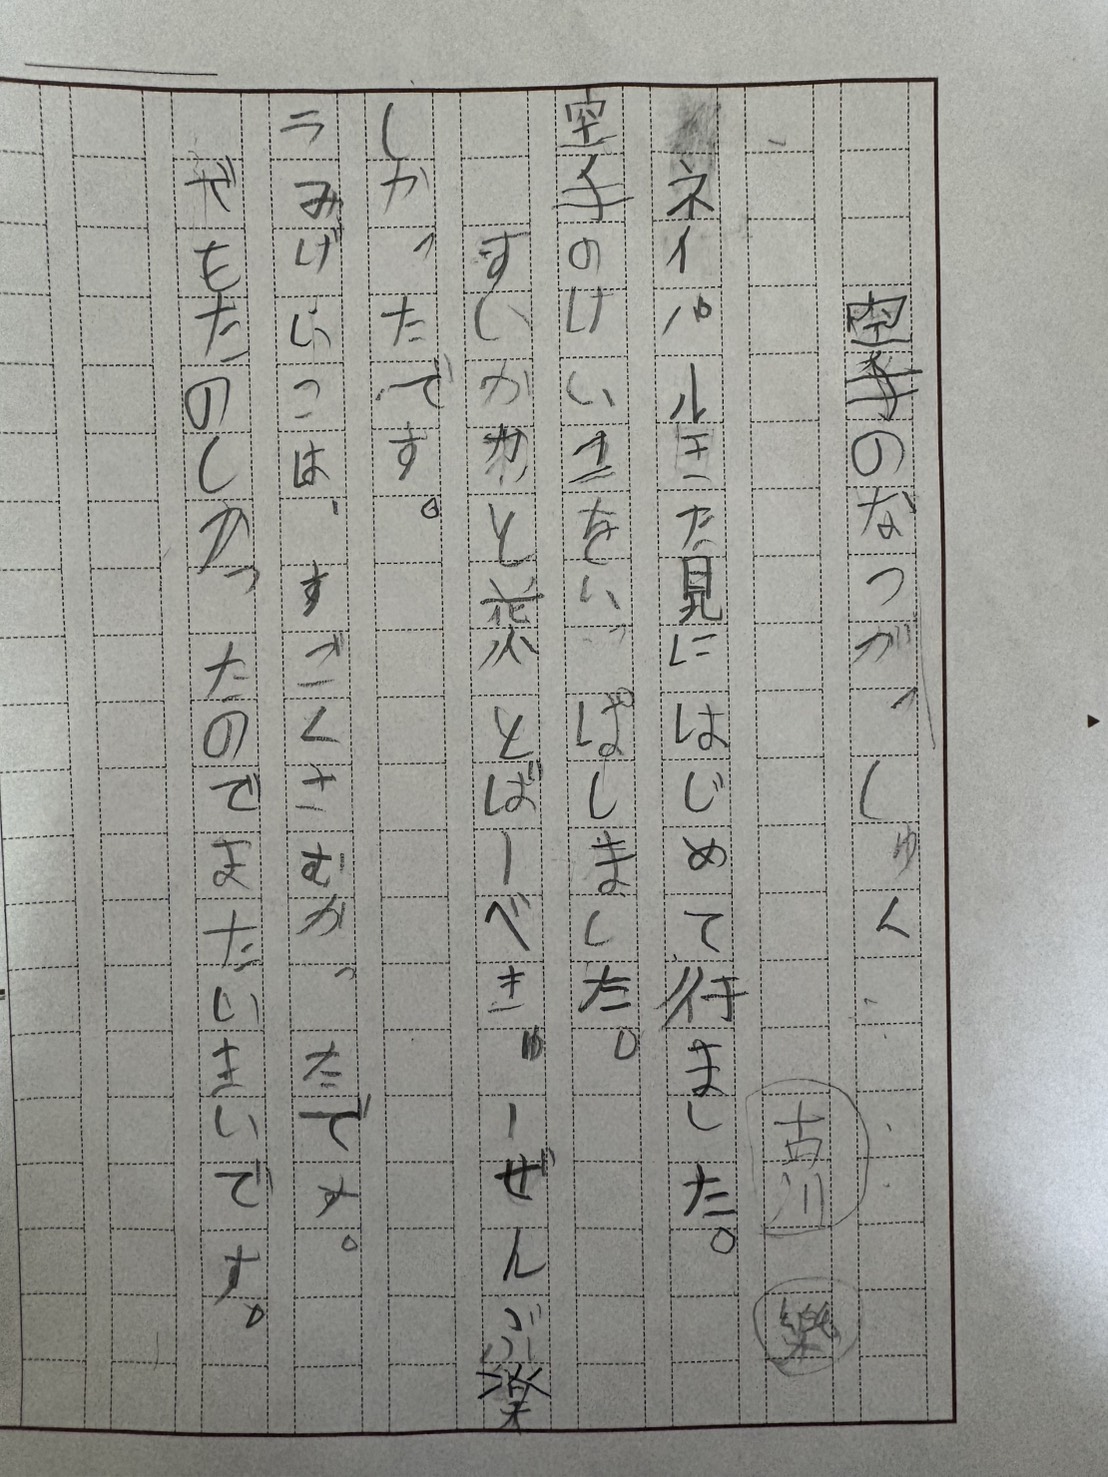 空手のなつがっしゅん
古川 樂
ネイパルきた見にはじめて行ました。
空手のけいこをいっぱしました。
すいかわと花火とばーべきゅーぜんぶ楽
しかったです。
うみげいこは、すごくさむかったです。
でもたのしかったのでまたいきいです。